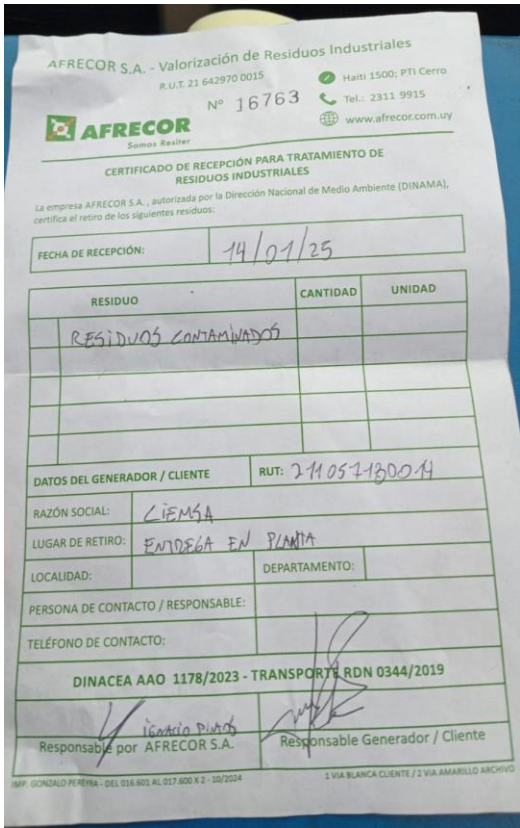 AFRECOR S.A. - Valorización de Residuos Industriales
R.U.T. 21 642970 0015
Nº 16763
Haiti 1500; PTI Cerro
Tel.: 2311 9915
www.afrecor.com.uy
AFRECOR
Somos Resiter
CERTIFICADO DE RECEPCIÓN PARA TRATAMIENTO DE
RESIDUOS INDUSTRIALES
La empresa AFRECOR S.A., autorizada por la Dirección Nacional de Medio Ambiente (DINAMA),
certifica el retiro de los siguientes residuos:
FECHA DE RECEPCIÓN: 14/01/25
RESIDUO CANTIDAD UNIDAD
RESIDUOS CONTAMINADOS
DATOS DEL GENERADOR / CLIENTE RUT: 211057130014
RAZÓN SOCIAL: CIEMSA
LUGAR DE RETIRO: ENTREGA EN PLANTA
LOCALIDAD: DEPARTAMENTO:
PERSONA DE CONTACTO / RESPONSABLE:
TELÉFONO DE CONTACTO:
DINACEA AAO 1178/2023 - TRANSPORTE RDN 0344/2019
IGNACIO
Responsable por AFRECOR S.A. Responsable Generador / Cliente
IMP. GONZALO PEREYRA - DEL 016.601 AL 017.600 X 2 - 10/2024 1 VIA BLANCA CLIENTE / 2 VIA AMARILLO ARCHIVO